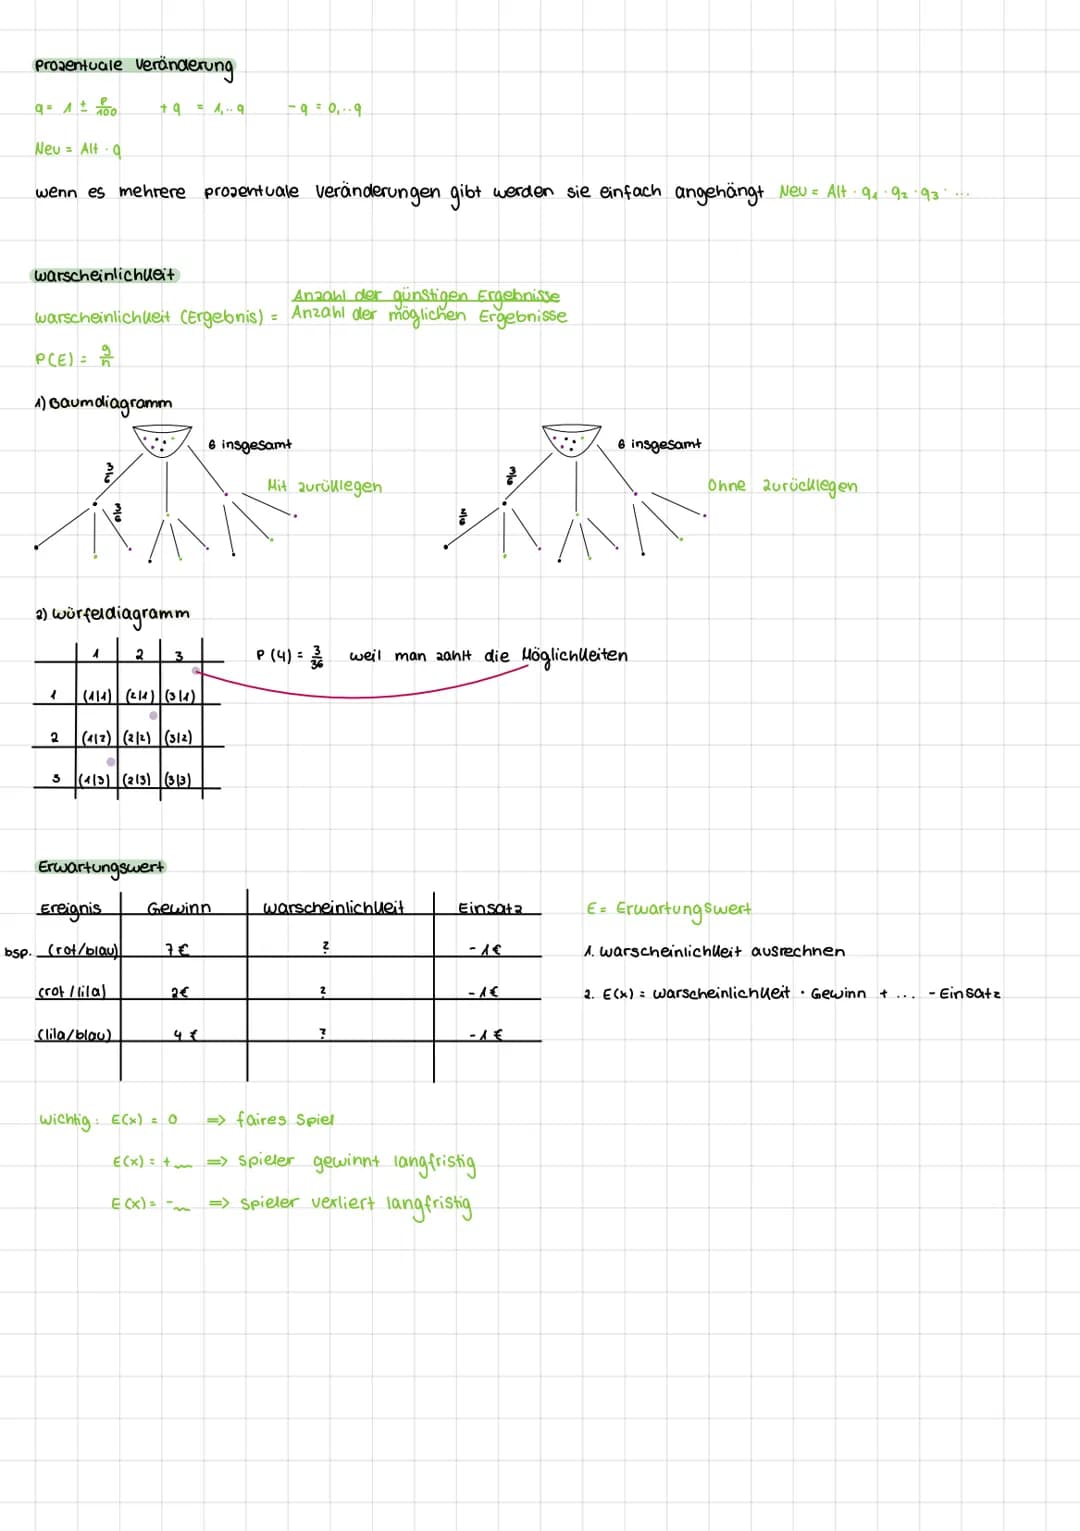 Prozentuale Veränderung
q = 1 ± p/100   + q = 1,..q   - q = 0,..q
Neu = Alt · q
wenn es mehrere prozentuale Veränderungen gibt werden sie einfach angehängt Neu = Alt · q1 · q2 · q3 · ...
Warscheinlichkeit
Anzahl der günstigen Ergebnisse
Warscheinlichkeit (Ergebnis) = Anzahl der möglichen Ergebnisse
P(E) = g/n
1) Baumdiagramm
6 insgesamt   6 insgesamt
Mit zurücklegen   Ohne zurücklegen
2) Würfeldiagramm
1 2 3   P(4) = 3/36 weil man zählt die Möglichkeiten
1 (1|1) (2|1) (3|1)
2 (1|2) (2|2) (3|2)
3 (1|3) (2|3) (3|3)
Erwartungswert
Ereignis Gewinn Warscheinlichkeit Einsatz   E = Erwartungswert
bsp. (rot/blau) 7€ ? -1€   1. Warscheinlichkeit ausrechnen
(rot/lila) 2€ ? -1€   2. E(x) = Warscheinlichkeit · Gewinn + ... - Einsatz
(lila/blau) 4€ ? -1€
Wichtig: E(x) = 0 => faires Spiel
E(x) = + => Spieler gewinnt langfristig
E(x) = - => Spieler verliert langfristig